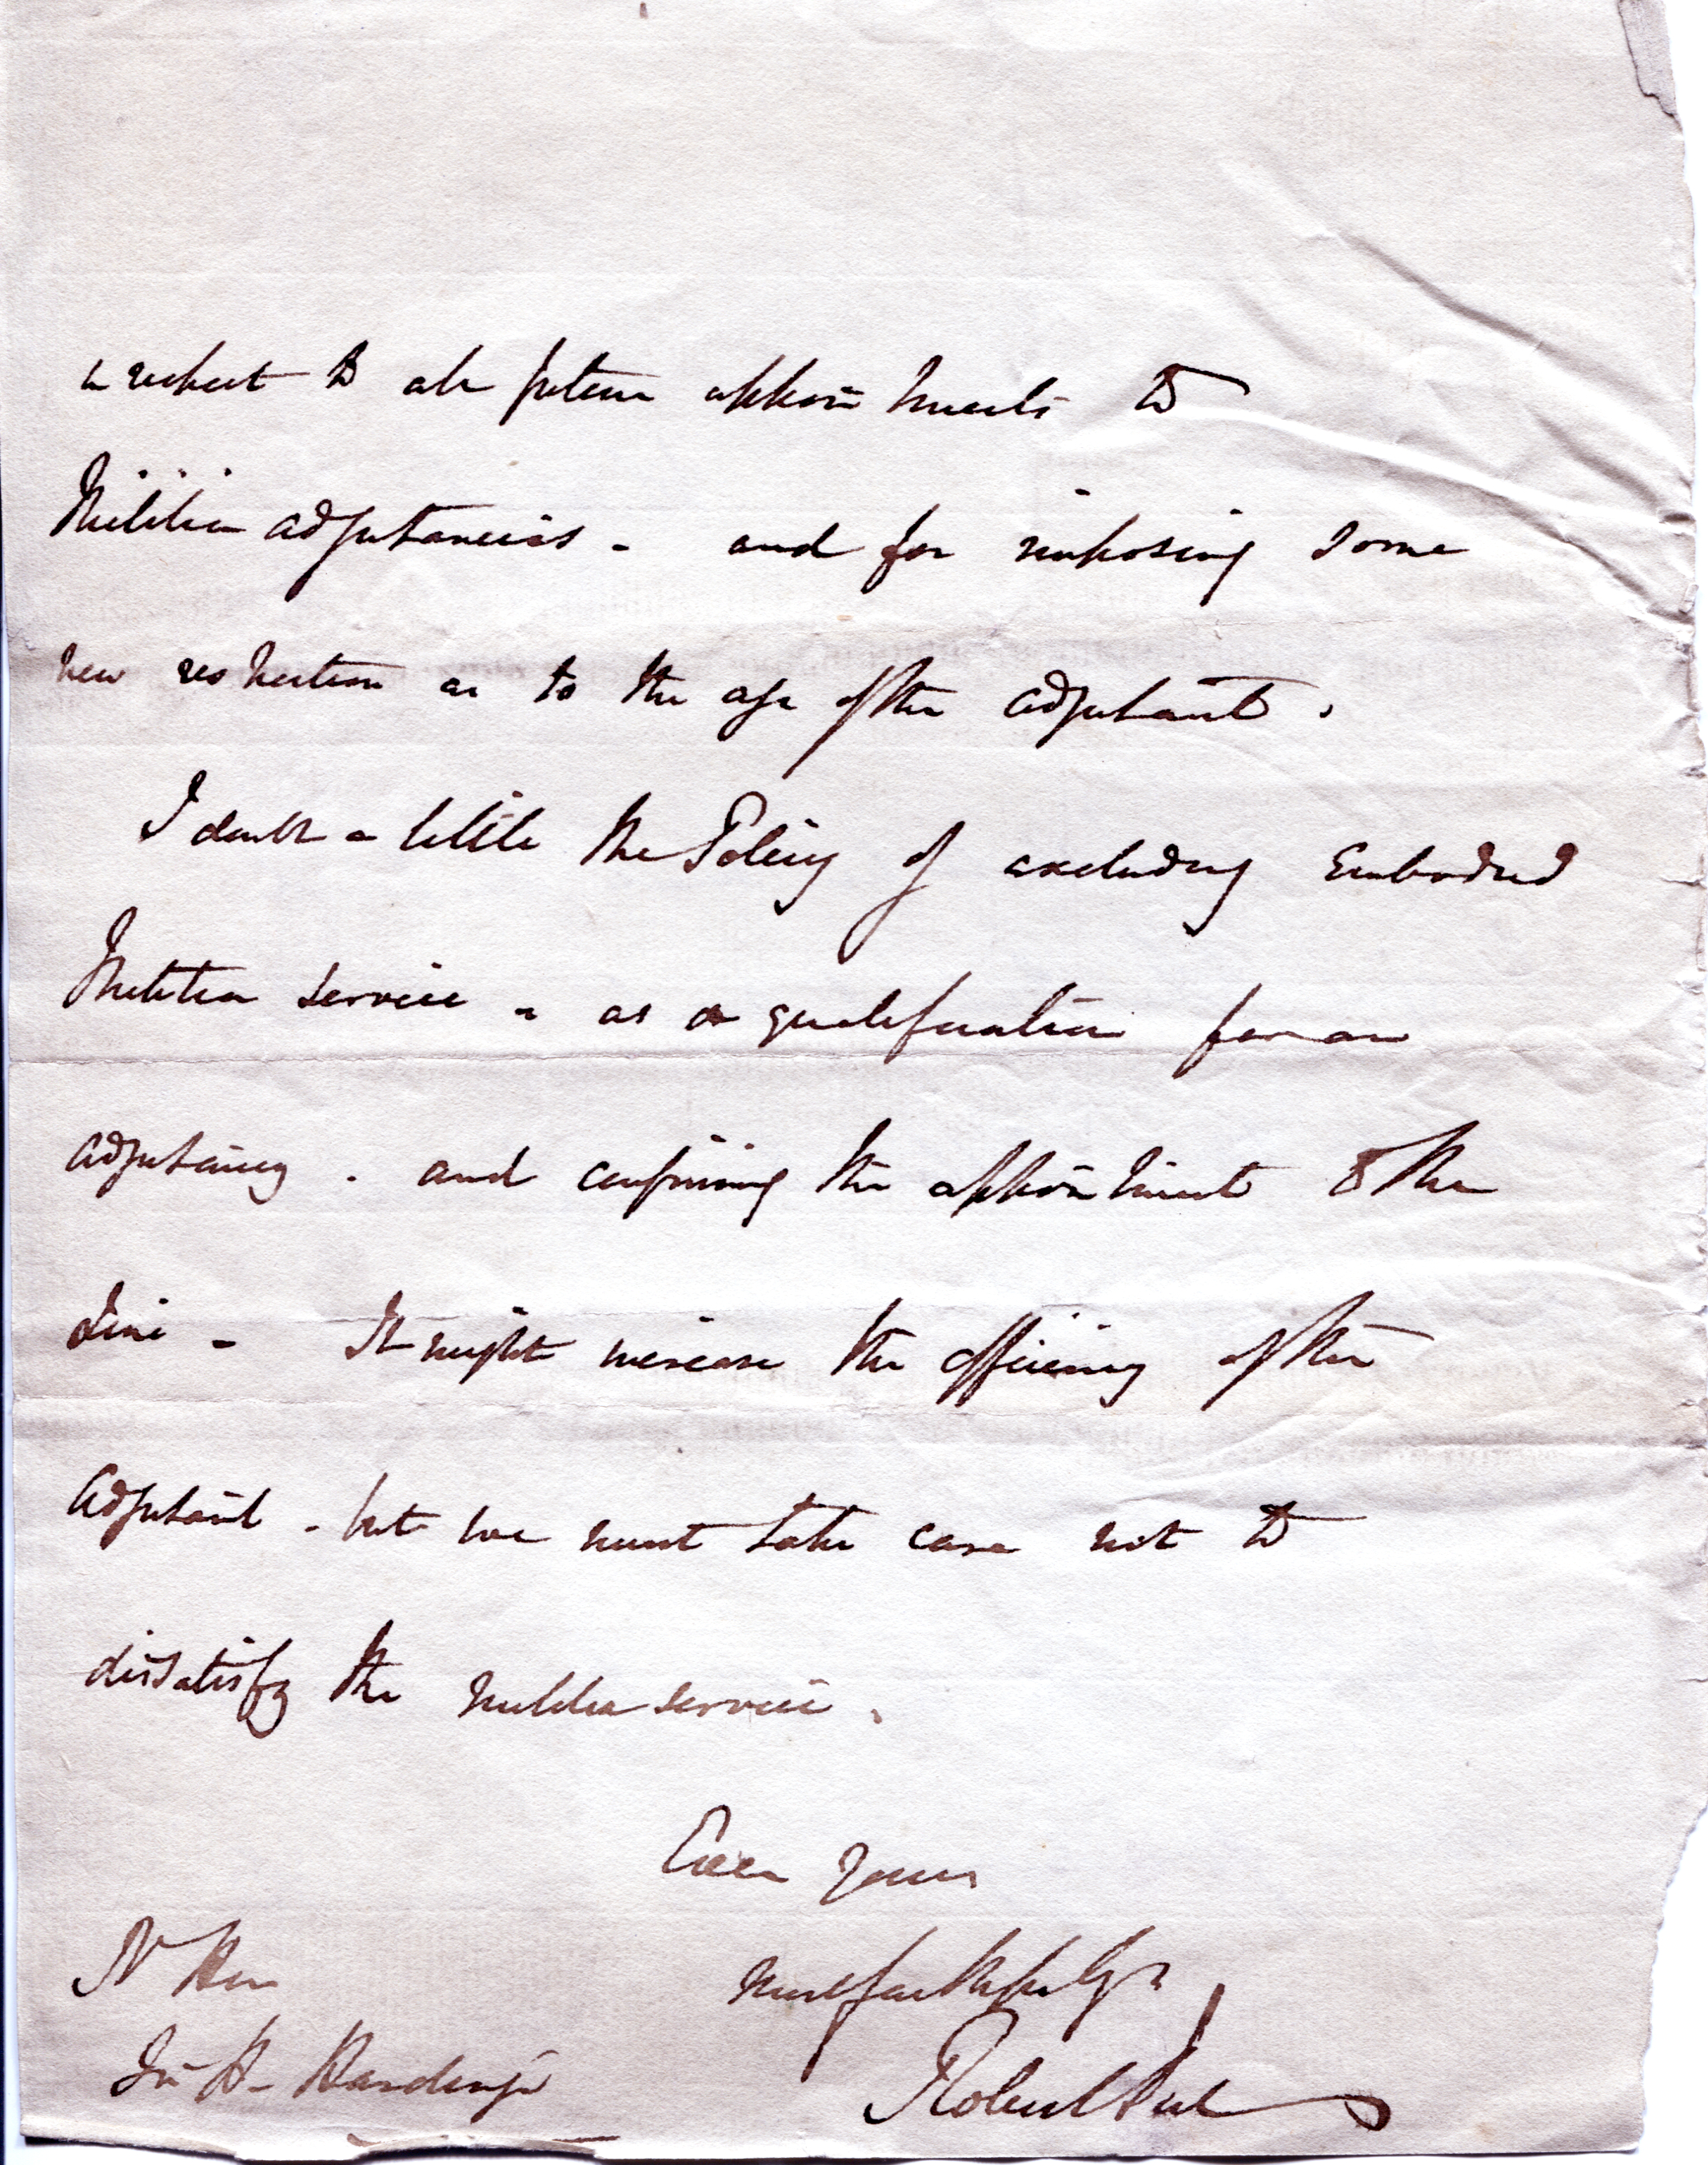 in respect to all future appointments to
Militia adjutancies - and for imposing some
new restriction as to the age of the adjutant.
I doubt a little the Policy of excluding Embodied
Militia service - as a qualification for an
adjutancy - and confining the appointment to the
Line - It might increase the efficiency of the
Adjutant - but we must take care not to
dissatisfy the militia service.
Ever yours
most faithfully
Robert Peel
Rt Hon
Sir H - Hardinge